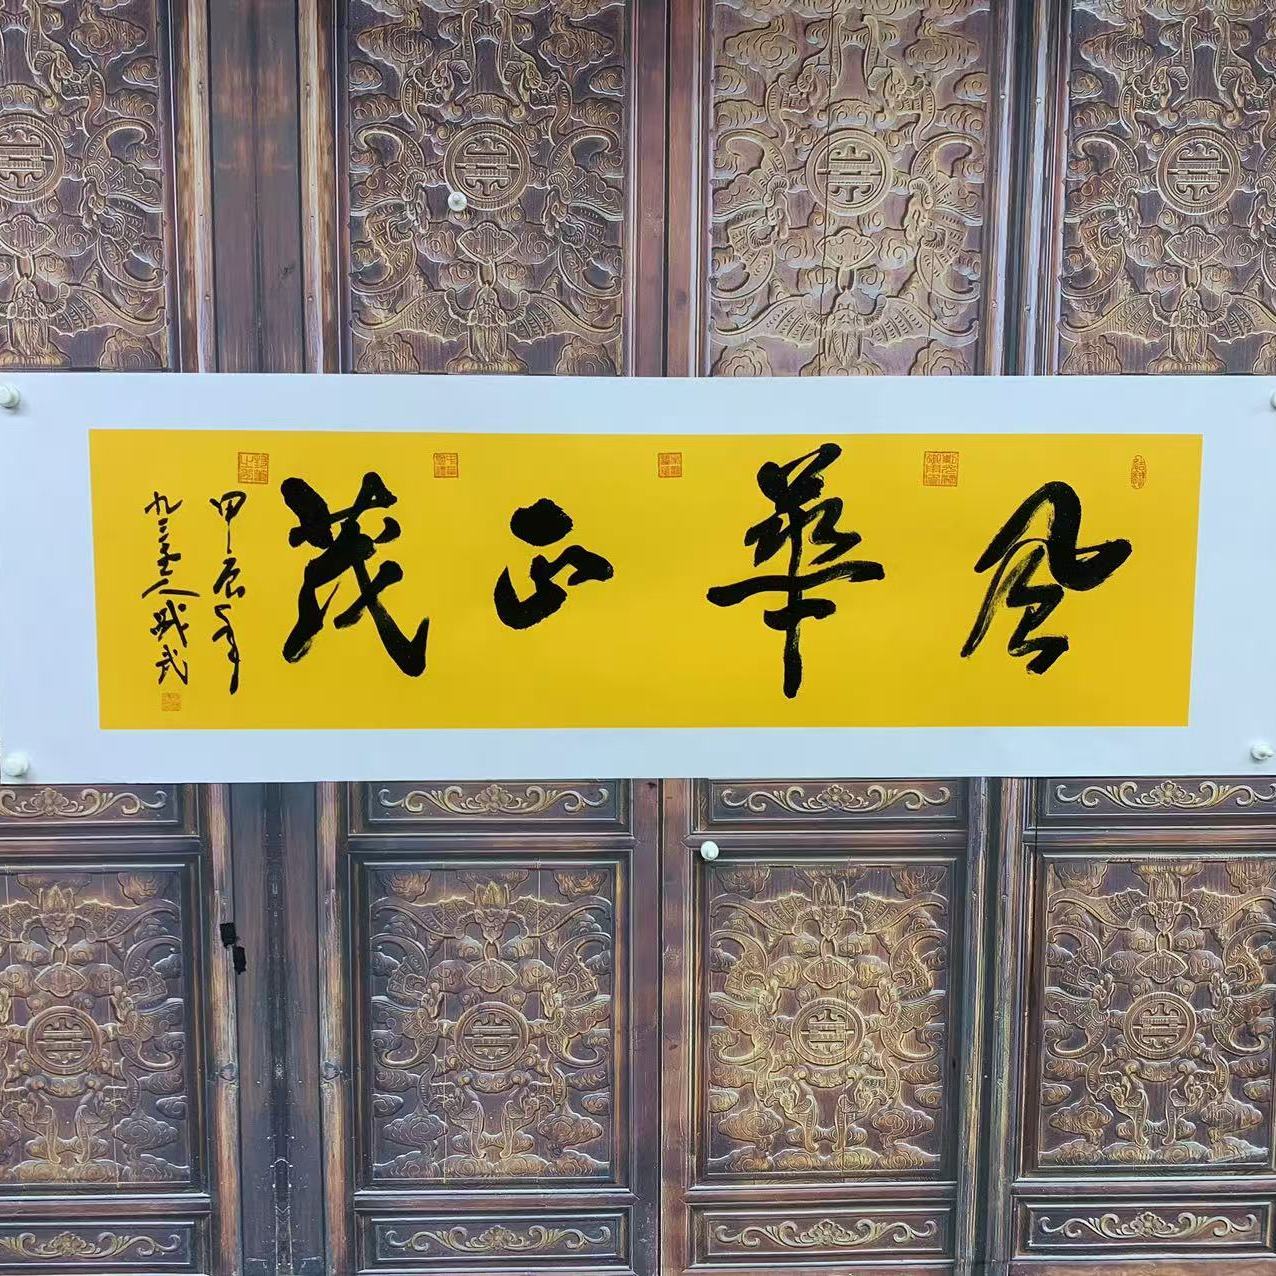 風華正茂
甲辰年
九三老人成武